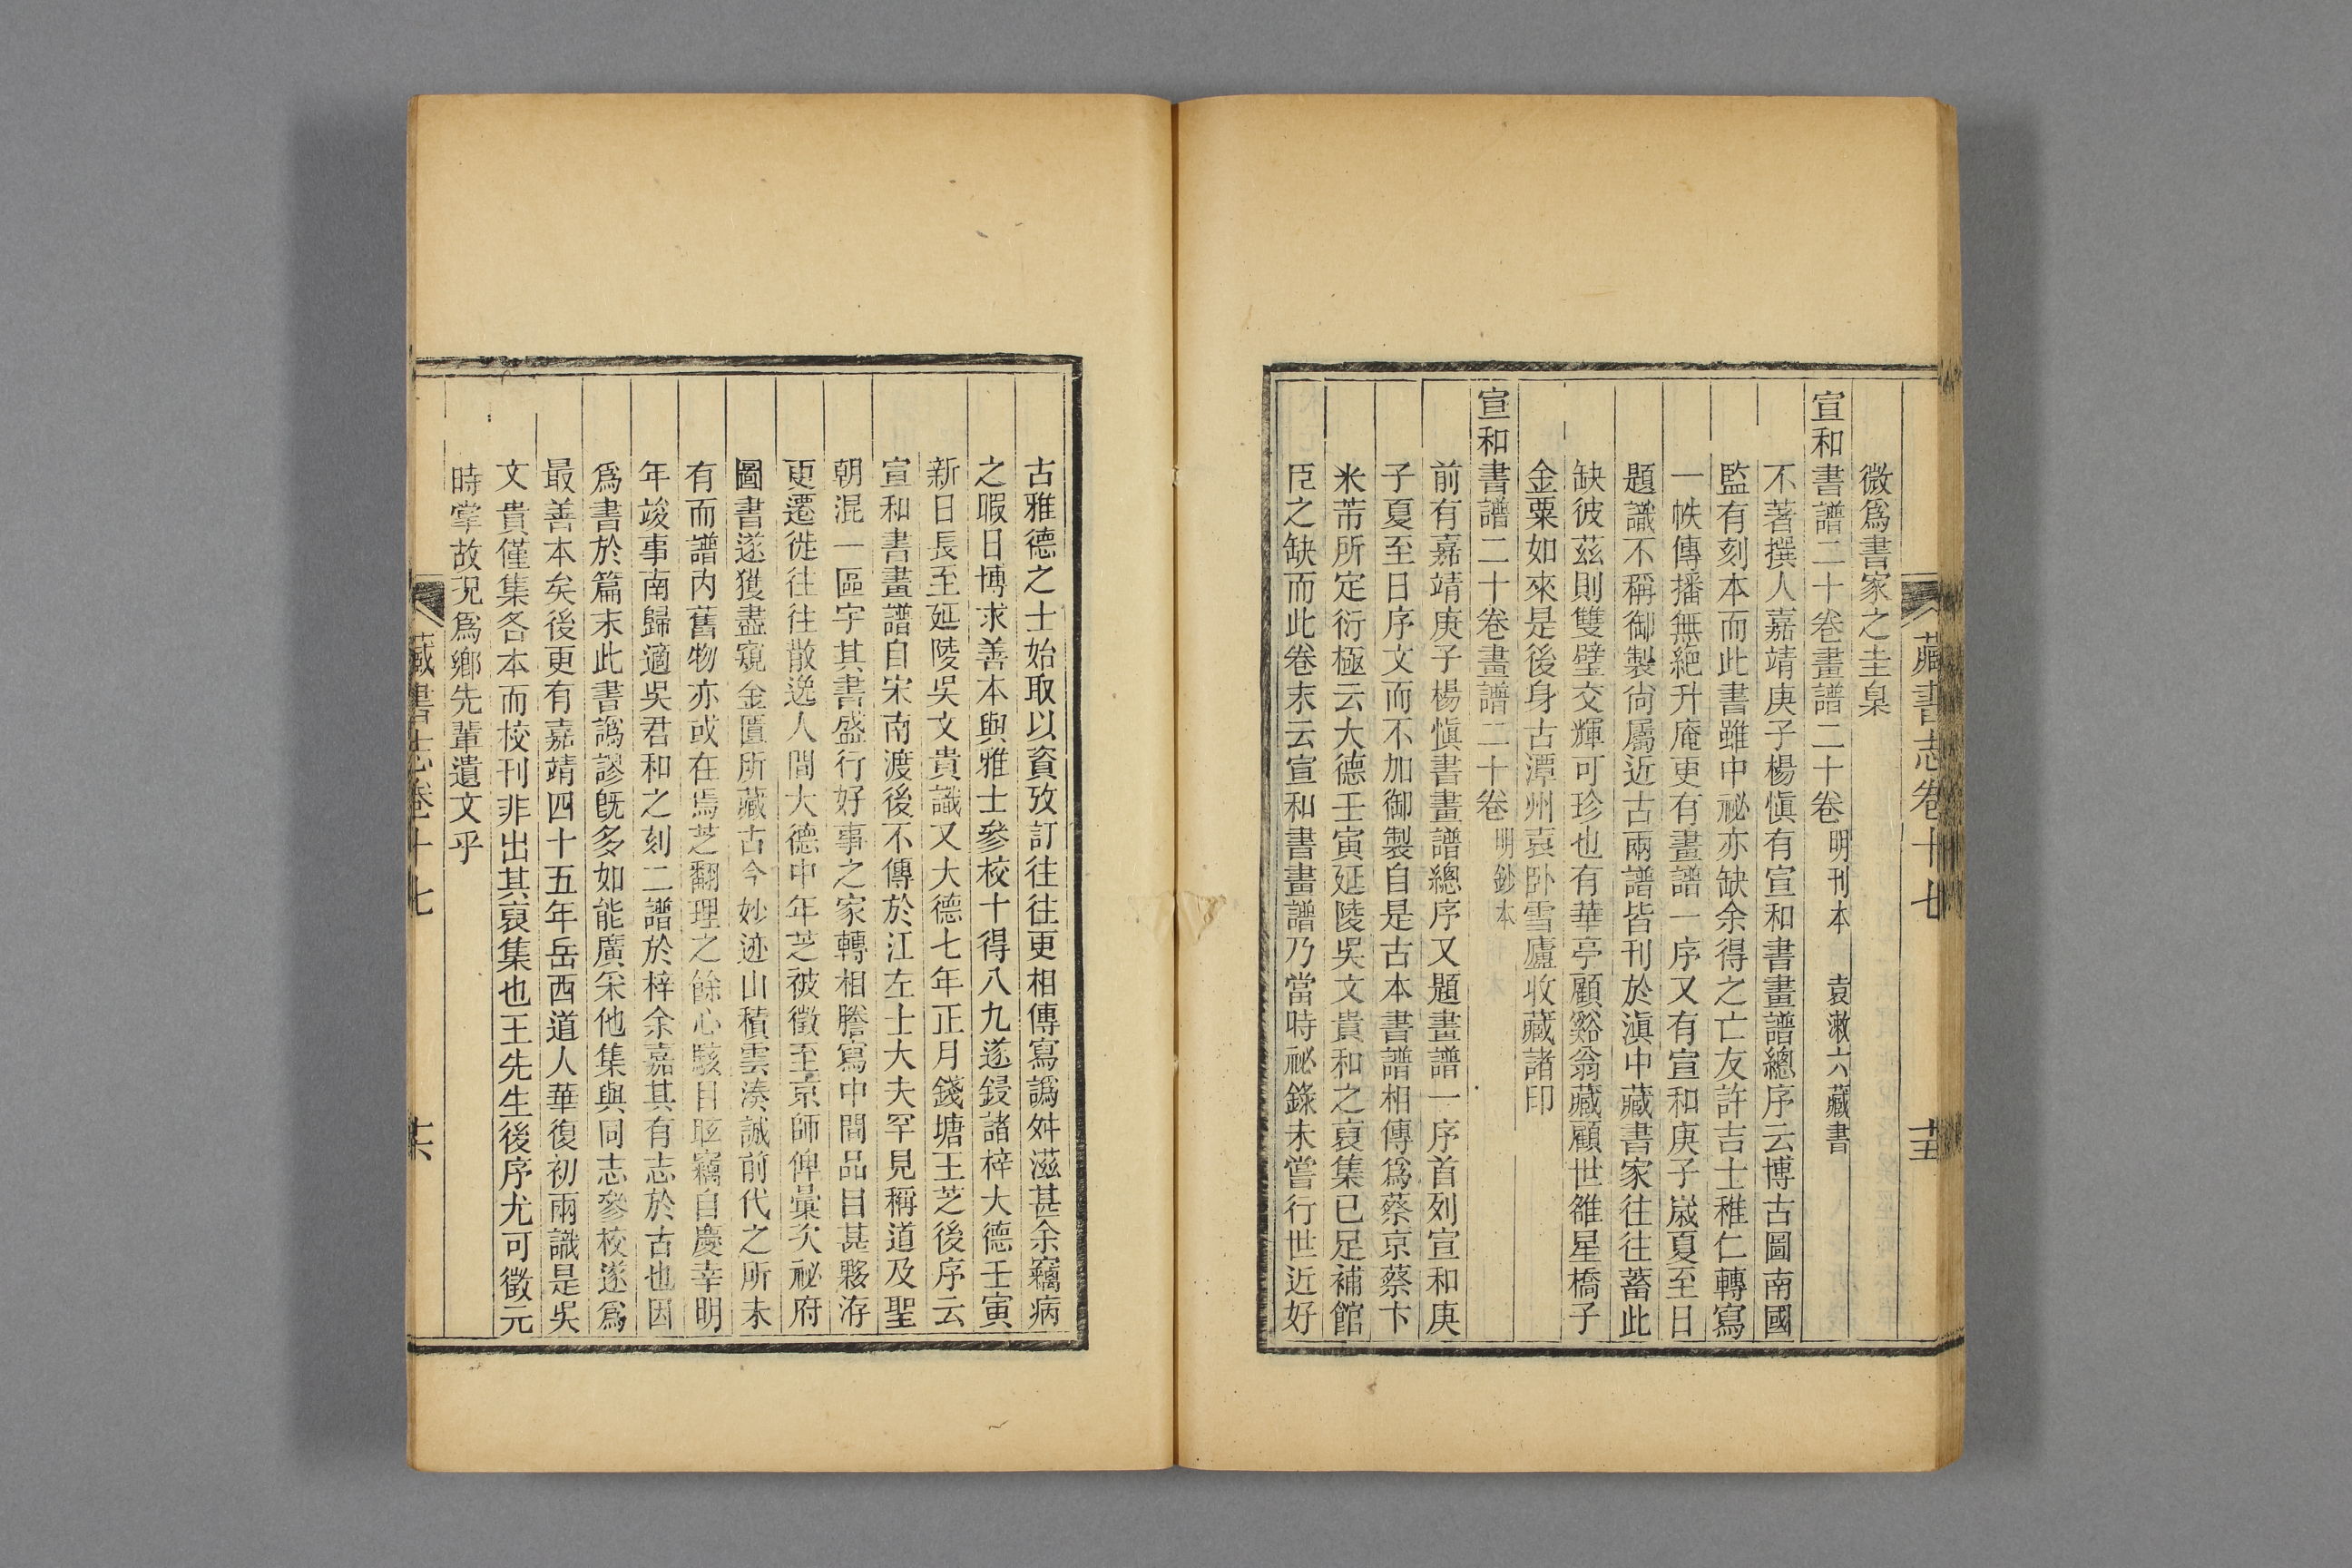 藏書志卷十七
十五
微爲書家之圭臬
宣和書譜二十卷畫譜二十卷明刊本　袁漱六藏書
不著撰人嘉靖庚子楊愼有宣和書畫譜總序云博古圖南國
監有刻本而此書雖中祕亦缺余得之亡友許吉士稚仁轉寫
一帙傳播無絶升庵更有畫譜一序又有宣和庚子嵗夏至日
題識不稱御製尙屬近古兩譜皆刊於滇中藏書家往往蓄此
缺彼茲則雙璧交輝可珍也有華亭顧谿翁藏顧世雒星橋子
金粟如來是後身古潭州袁臥雪廬收藏諸印
宣和書譜二十卷畫譜二十卷明鈔本
前有嘉靖庚子楊愼書畫譜總序又題畫譜一序首列宣和庚
子夏至日序文而不加御製自是古本書譜相傳爲蔡京蔡卞
米芾所定衍極云大德壬寅延陵吳文貴和之裒集已足補館
臣之缺而此卷末云宣和書畫譜乃當時祕錄未嘗行世近好
古雅德之士始取以資攷訂往往更相傳寫譌舛滋甚余竊病
之暇日博求善本與雅士參校十得八九遂鋟諸梓大德壬寅
新日長至延陵吳文貴識又大德七年正月錢塘王芝後序云
宣和書畫譜自宋南渡後不傳於江左士大夫罕見稱道及聖
朝混一區宇其書盛行好事之家轉相謄寫中間品目甚夥洊
更遷徙往往散逸人間大德中年芝被徵至京師俾彙次祕府
圖書遂獲盡窺金匱所藏古今妙迹山積雲湊誠前代之所未
有而譜内舊物亦或在焉芝翻理之餘心駭目眩竊自慶幸明
年竣事南歸適吳君和之刻二譜於梓余嘉其有志於古也因
爲書於篇末此書譌謬旣多如能廣采他集與同志參校遂爲
最善本矣後更有嘉靖四十五年岳西道人華復初兩識是吳
文貴僅集各本而校刊非出其裒集也王先生後序尤可徵元
時掌故況爲鄉先輩遺文乎
藏書志卷十七
十六